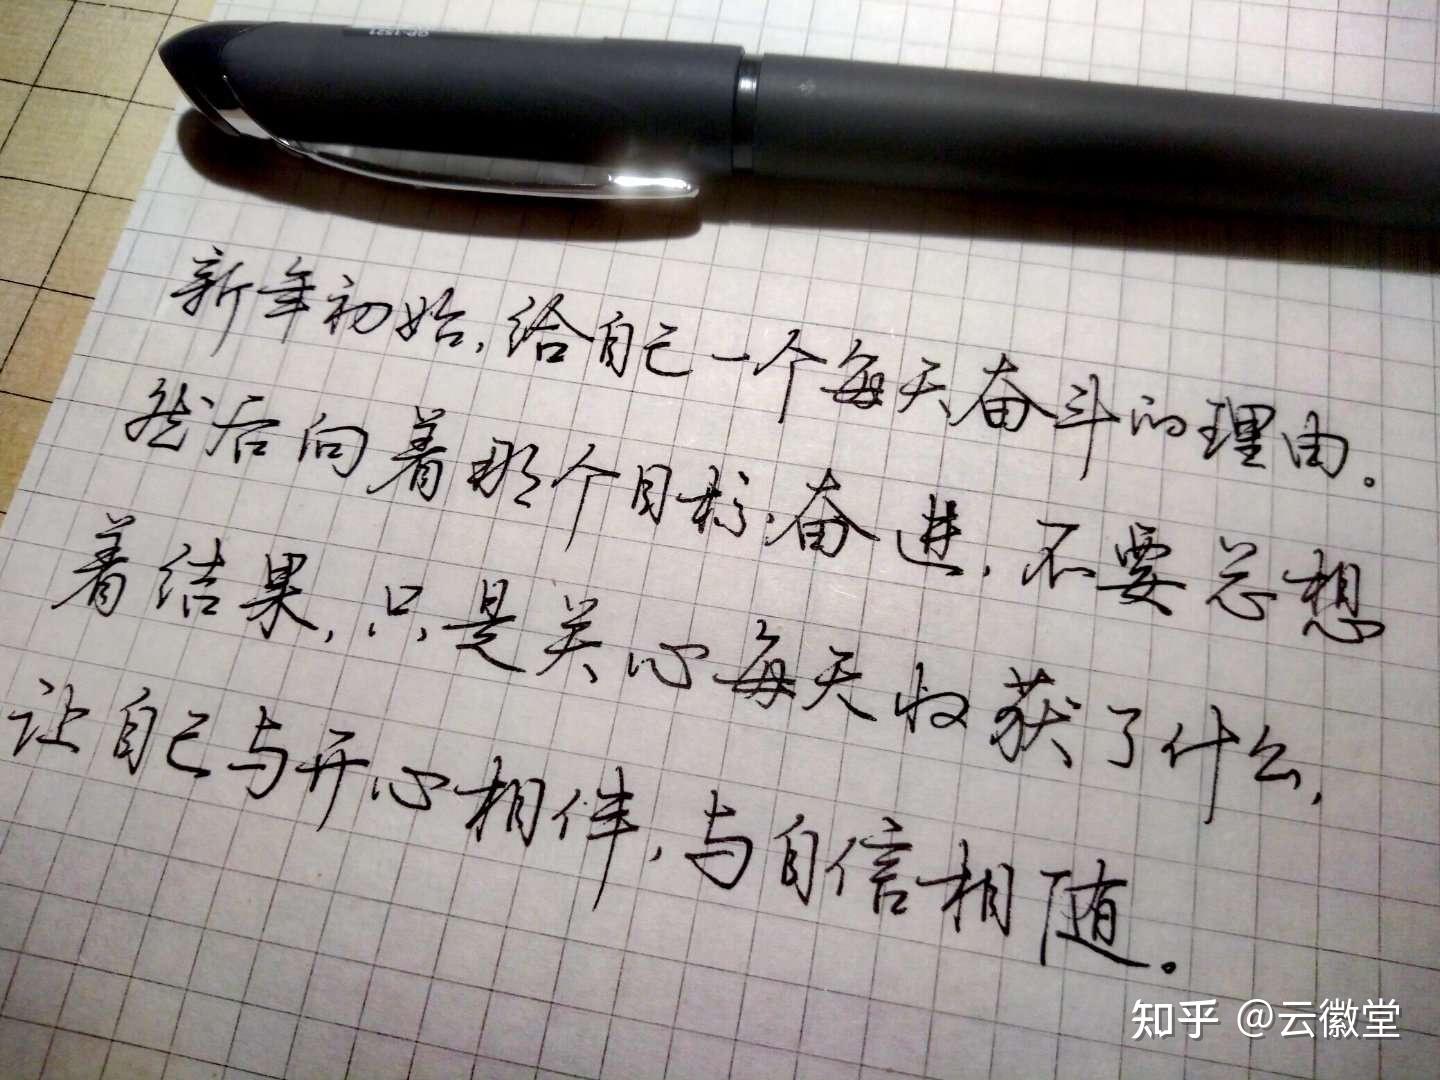 GP-1521
新年初始，给自己一个每天奋斗的理由。
然后向着那个目标，奋进，不要总想
着结果，只是关心每天收获了什么，
让自己与开心相伴，与自信相随。
知乎 @云徽堂